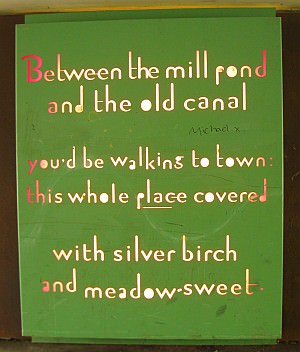 Between the mill pond
and the old canal
Michael x
you'd be walking to town:
this whole place covered
with silver birch
and meadow-sweet.